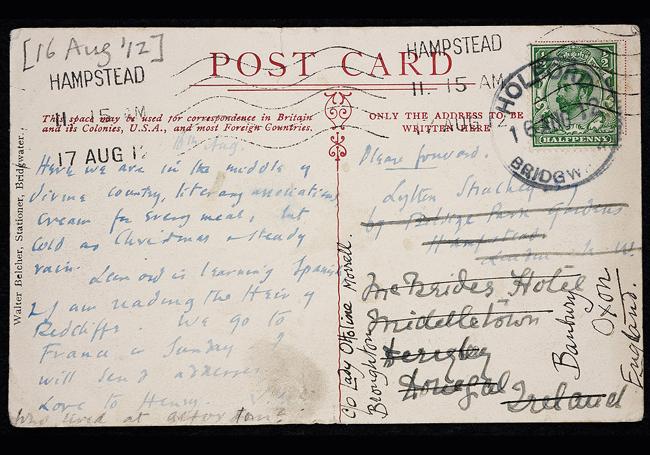 [16 Aug '12]
HAMPSTEAD
11. 15 AM
17 AUG 12
HAMPSTEAD
11. 15 AM
AUG 12
POST CARD
This space may be used for correspondence in Britain
and its Colonies, U.S.A., and most Foreign Countries.
ONLY THE ADDRESS TO BE
WRITTEN HERE
HOLFORD
16 AUG 12
BRIDGW
HALFPENNY
Walter Belcher, Stationer, Bridgwater.
16th Aug.
Here we are in the middle of
divine country, literary associations,
cream for every meal, but
cold as Christmas & steady
rain. Leonard is learning Spanish
& I am reading the Heir of
Redcliffe. We go to
France on Sunday &
will send addresses
Love to Henry.
who lived at
Please forward.
Lytton Strachey
Belsize Park Gardens
Hampstead
London N.W.
McBrides Hotel
Middletown
Donegal
Ireland
c/o Lady Ottoline Morrell
Broughton
Banbury
Oxon
England.